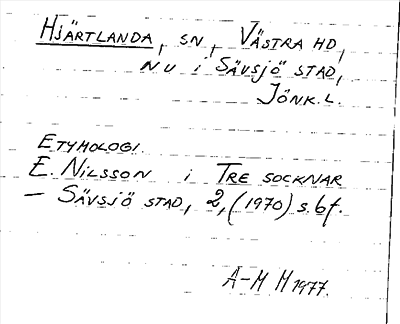 HJÄRTLANDA, SN, VÄSTRA HD,
NU i SÄVSJÖ STAD,
JÖNK.L.
ETYMOLOGI.
E. NILSSON i TRE SOCKNAR
– SÄVSJÖ STAD, 2, (1970) s. 6f.
A-M M 1977.